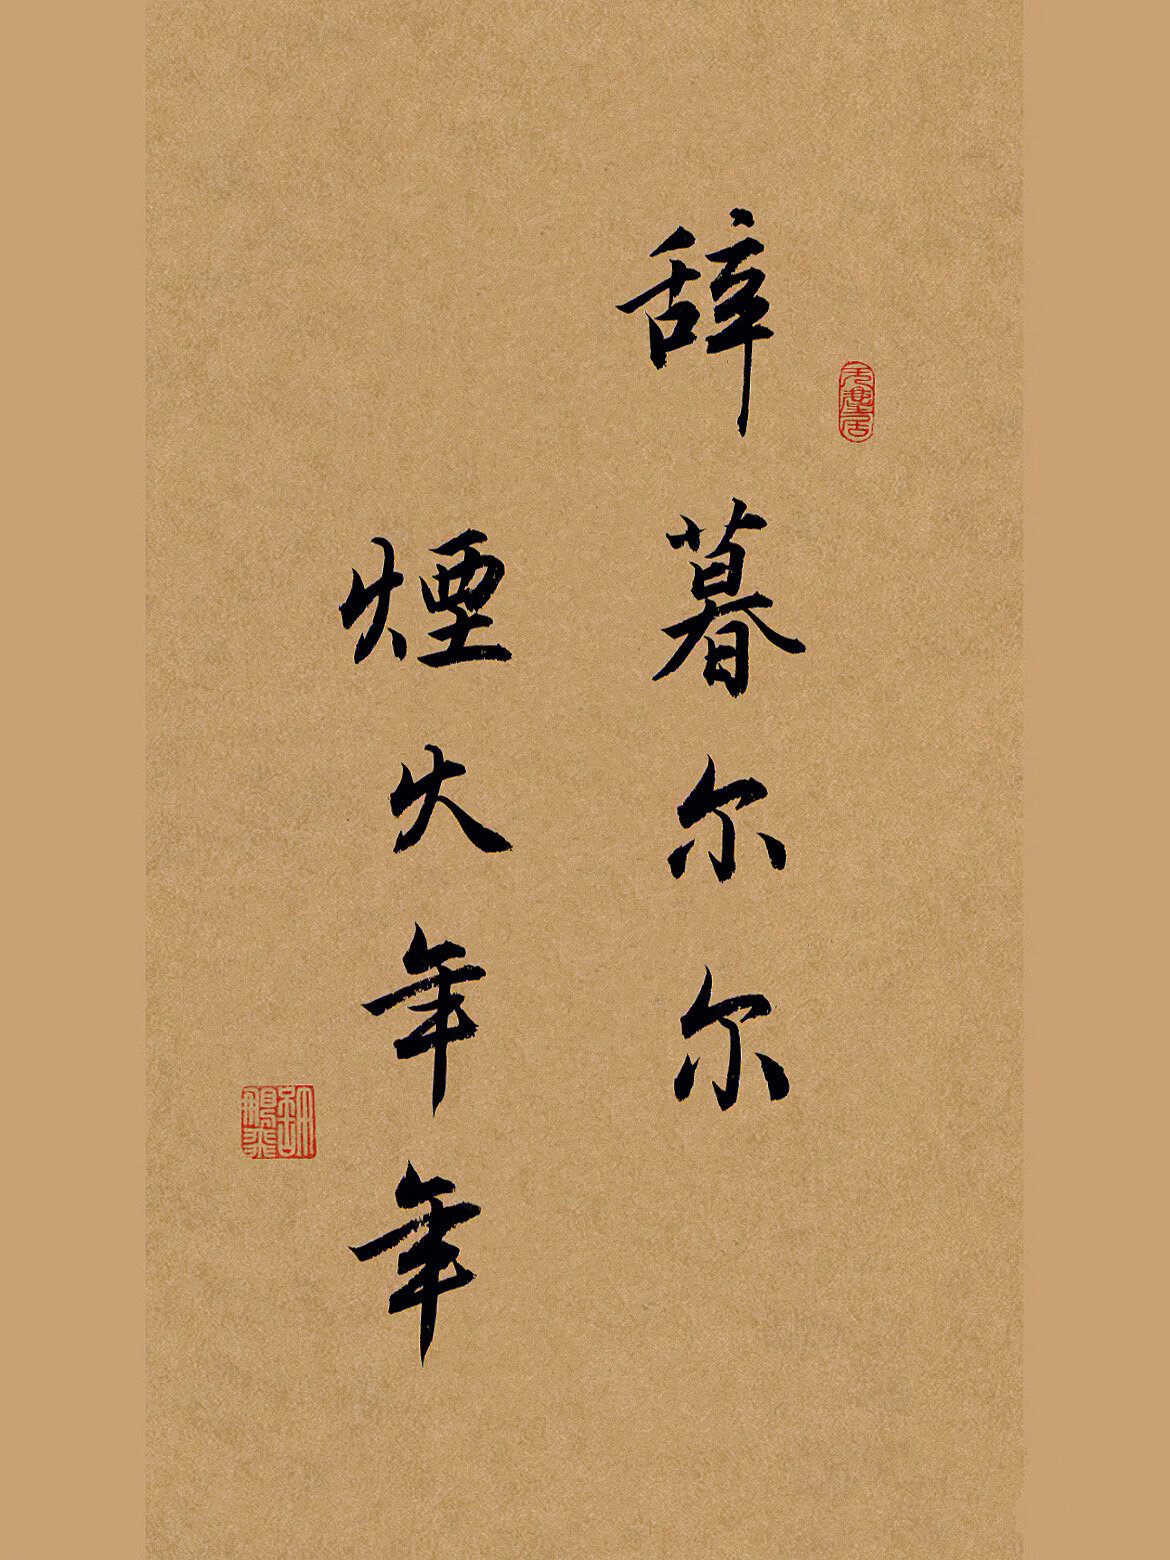 辞暮尔尔
煙火年年